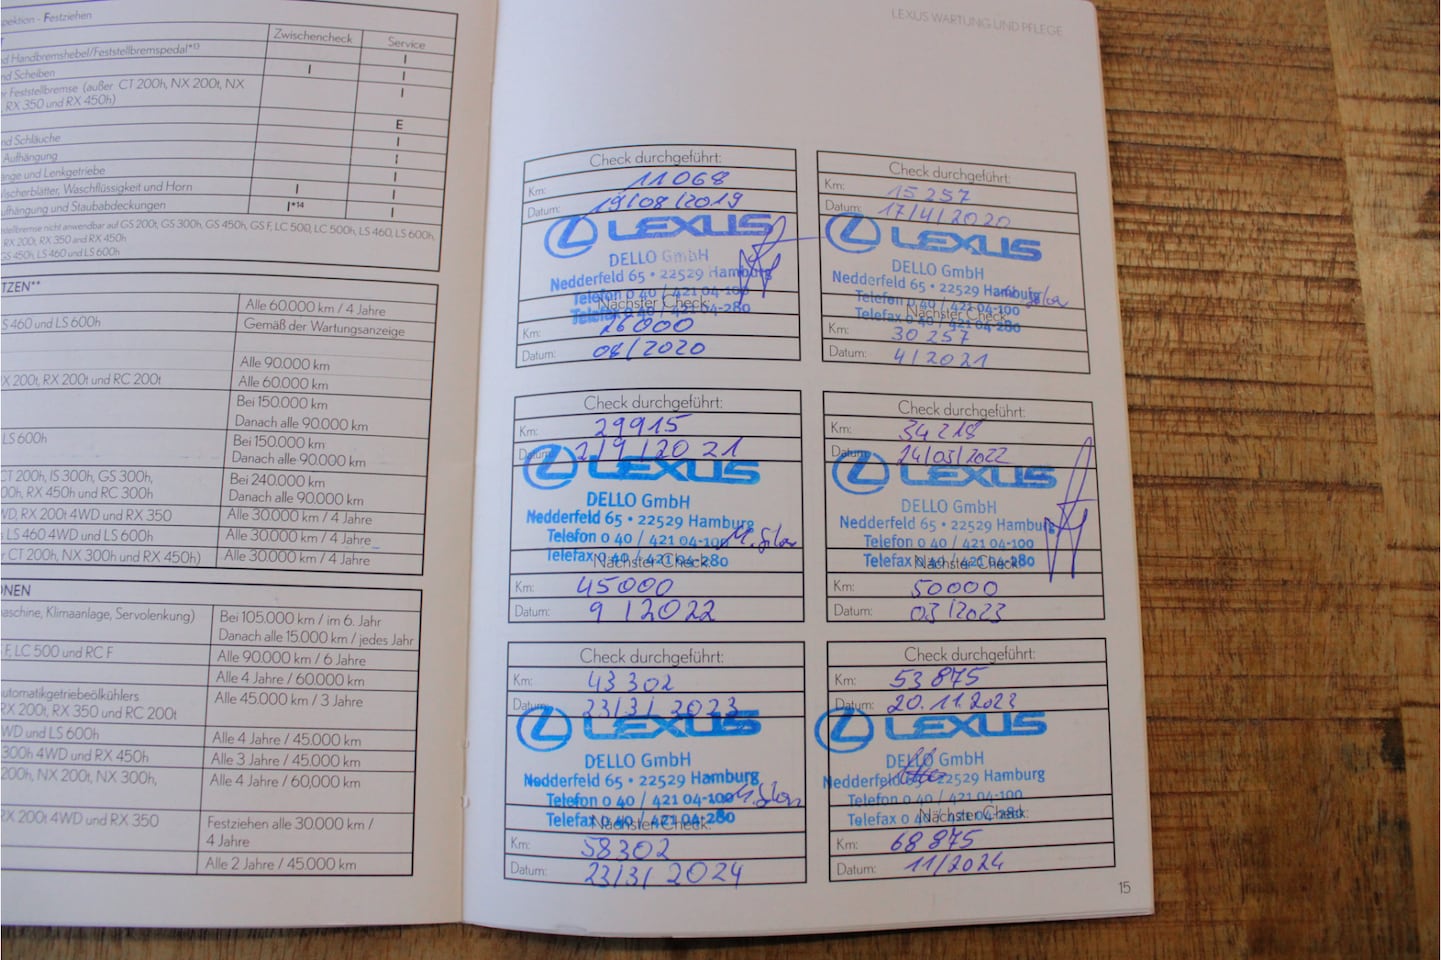 pektion - Festziehen
Zwischencheck
Service
d Handbremshebel/Feststellbremspedal*¹³
I
nd Scheiben
I
I
r Feststellbremse (außer CT 200h, NX 200t, NX
RX 350 und RX 450h)
I
E
nd Schläuche
I
Aufhängung
I
änge und Lenkgetriebe
I
ischerblätter, Waschflüssigkeit und Horn
I
I
ufhängung und Staubabdeckungen
I*¹⁴
I
stellbremse nicht anwendbar auf GS 200t, GS 300h, GS 450h, GS F, LC 500, LC 500h, LS 460, LS 600h,
RX 200t, RX 350 and RX 450h
GS 450h, LS 460 und LS 600h
TZEN**
Alle 60.000 km / 4 Jahre
S 460 und LS 600h
Gemäß der Wartungsanzeige
Alle 90.000 km
X 200t, RX 200t und RC 200t
Alle 60.000 km
Bei 150.000 km
Danach alle 90.000 km
LS 600h
Bei 150.000 km
Danach alle 90.000 km
CT 200h, IS 300h, GS 300h,
00h, RX 450h und RC 300h
Bei 240.000 km
Danach alle 90.000 km
WD, RX 200t 4WD und RX 350
Alle 30.000 km / 4 Jahre
LS 460 4WD und LS 600h
Alle 30.000 km / 4 Jahre
r CT 200h, NX 300h und RX 450h)
Alle 30.000 km / 4 Jahre
ONEN
aschine, Klimaanlage, Servolenkung)
Bei 105.000 km / im 6. Jahr
Danach alle 15.000 km / jedes Jahr
F, LC 500 und RC F
Alle 90.000 km / 6 Jahre
Alle 4 Jahre / 60.000 km
utomatikgetriebeölkühlers
RX 200t, RX 350 und RC 200t
Alle 45.000 km / 3 Jahre
WD und LS 600h
Alle 4 Jahre / 45.000 km
300h 4WD und RX 450h
Alle 3 Jahre / 45.000 km
200h, NX 200t, NX 300h,
Alle 4 Jahre / 60,000 km
RX 200t 4WD und RX 350
Festziehen alle 30.000 km /
4 Jahre
Alle 2 Jahre / 45.000 km
LEXUS WARTUNG UND PFLEGE
Check durchgeführt:
Km: 11068
Datum: 19/08/2019
LEXUS
DELLO GmbH
Nedderfeld 65 • 22529 Hamburg
Telefon 0 40 / 421 04-100
Telefax 0 40 / 421 04-280
Nächster Check:
Km: 26000
Datum: 08/2020
Check durchgeführt:
Km: 15257
Datum: 17/4/2020
LEXUS
DELLO GmbH
Nedderfeld 65 • 22529 Hamburg
Telefon 0 40 / 421 04-100
Telefax 0 40 / 421 04-280
Nächster Check:
Km: 30257
Datum: 4/2021
Check durchgeführt:
Km: 29915
Datum: 2/9/2021
LEXUS
DELLO GmbH
Nedderfeld 65 • 22529 Hamburg
Telefon 0 40 / 421 04-100
Telefax 0 40 / 421 04-280
Nächster Check:
Km: 45000
Datum: 9/2022
Check durchgeführt:
Km: 34218
Datum: 24/03/2022
LEXUS
DELLO GmbH
Nedderfeld 65 • 22529 Hamburg
Telefon 0 40 / 421 04-100
Telefax 0 40 / 421 04-280
Nächster Check:
Km: 50000
Datum: 03/2023
Check durchgeführt:
Km: 43302
Datum: 23/3/2023
LEXUS
DELLO GmbH
Nedderfeld 65 • 22529 Hamburg
Telefon 0 40 / 421 04-100
Telefax 0 40 / 421 04-280
Nächster Check:
Km: 58302
Datum: 23/3/2024
Check durchgeführt:
Km: 53875
Datum: 20.11.2023
LEXUS
DELLO GmbH
Nedderfeld 22529 Hamburg
Telefon 0 40 / 421 04-100
Telefax 0 40 / 421 04-280
Nächster Check:
Km: 68875
Datum: 11/2024
15